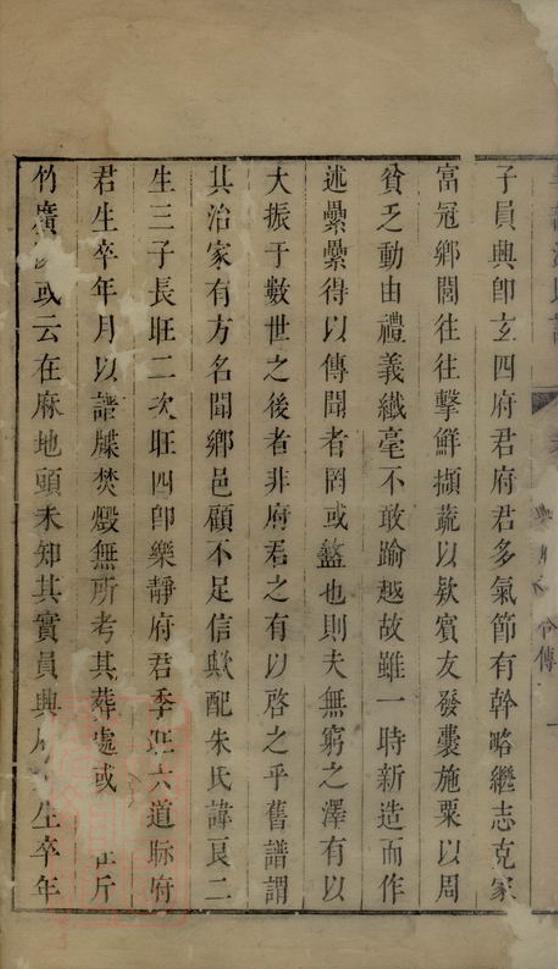 子員興卽玄四府君府君多氣節有幹略繼志克家
富冠鄉閭往往擊鮮擷蔬以欵賓友發囊施粟以周
貧乏動由禮義纖毫不敢踰越故雖一時新造而作
述纍纍得以傳聞者罔或盩也則夫無窮之澤有以
大振于數世之後者非府君之有以啓之乎舊譜謂
其治家有方名聞鄉邑顧不足信歟配朱氏諱良二
生三子長旺二次旺四卽樂靜府君季旺六道府
君生卒年月以譜牒焚燬無所考其葬處或斤
竹廣或云在麻地頭未知其實員興生卒年
傳